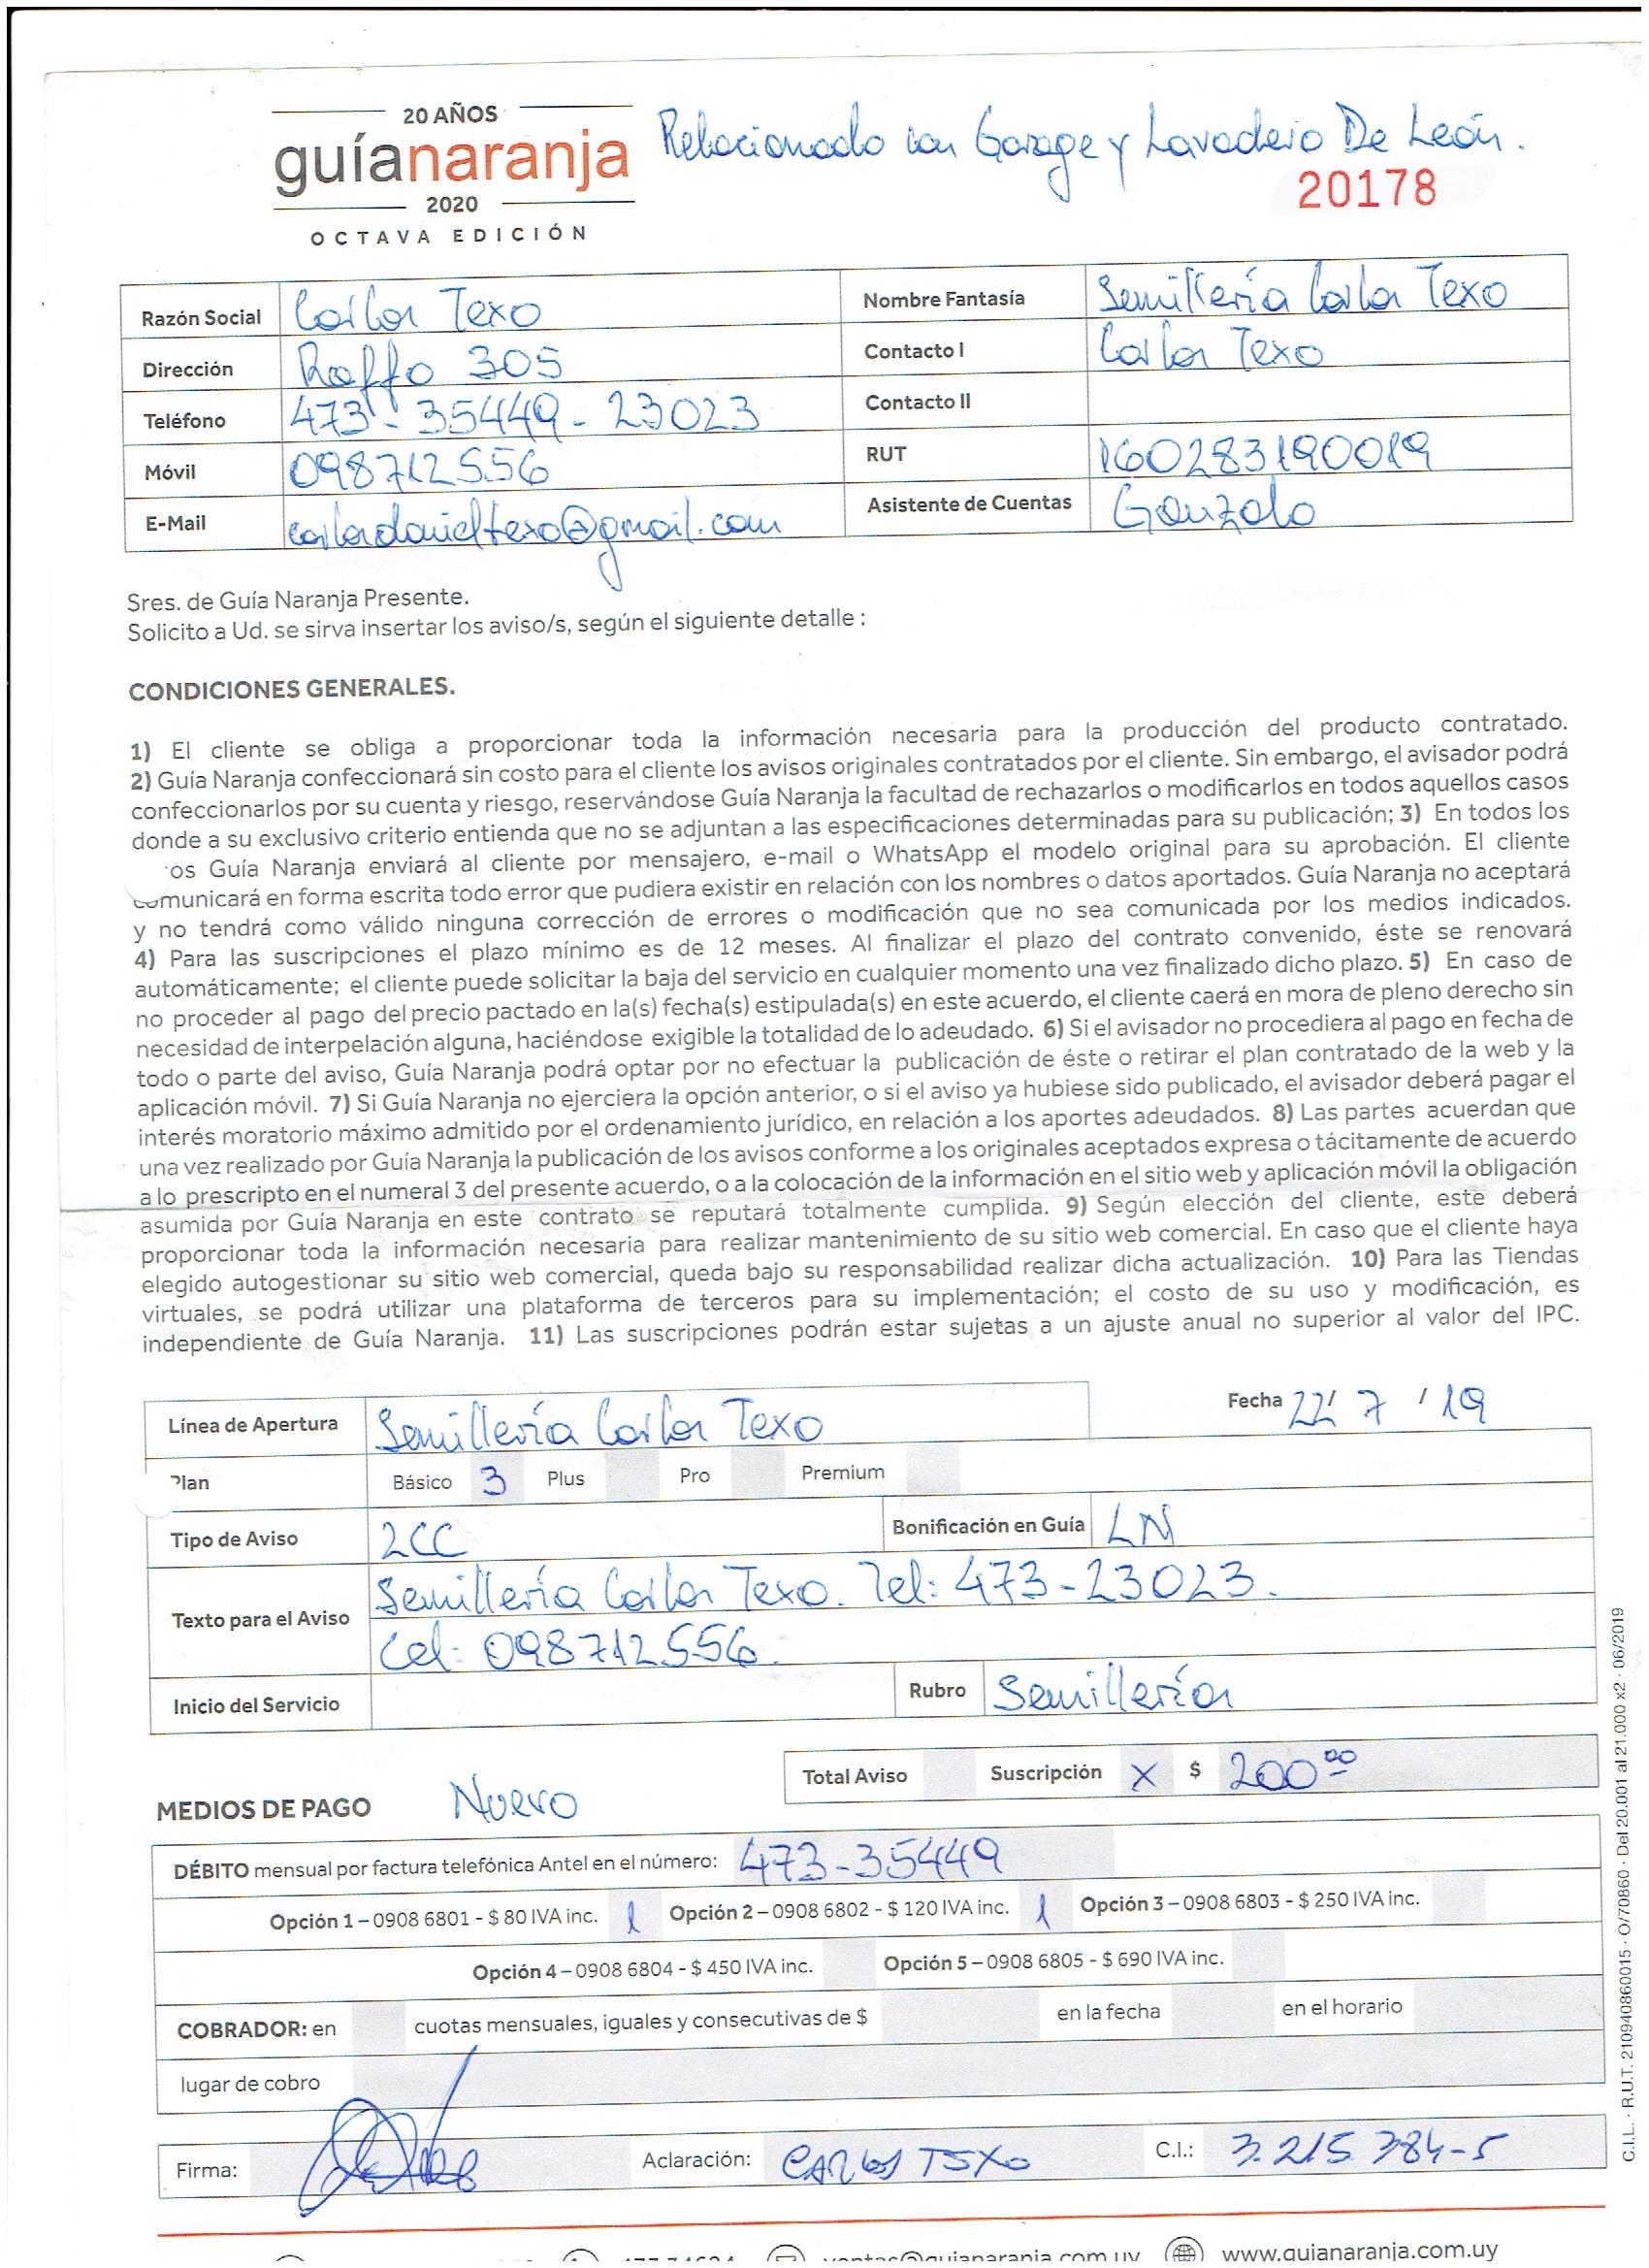 20 AÑOS
guíanaranja
2020
OCTAVA EDICIÓN
Relacionado con Garage y Lavadero De León.
20178
Razón Social Carlos Texo Nombre Fantasía Semillería Carlos Texo
Dirección Raffo 305 Contacto I Carlos Texo
Teléfono 473-35449-23023 Contacto II
Móvil 098712556 RUT 160283190019
E-Mail carlosdanieltexo@gmail.com Asistente de Cuentas Gonzalo
Sres. de Guía Naranja Presente.
Solicito a Ud. se sirva insertar los aviso/s, según el siguiente detalle :
CONDICIONES GENERALES.
1) El cliente se obliga a proporcionar toda la información necesaria para la producción del producto contratado.
2) Guía Naranja confeccionará sin costo para el cliente los avisos originales contratados por el cliente. Sin embargo, el avisador podrá
confeccionarlos por su cuenta y riesgo, reservándose Guía Naranja la facultad de rechazarlos o modificarlos en todos aquellos casos
donde a su exclusivo criterio entienda que no se adjuntan a las especificaciones determinadas para su publicación; 3) En todos los
os Guía Naranja enviará al cliente por mensajero, e-mail o WhatsApp el modelo original para su aprobación. El cliente
comunicará en forma escrita todo error que pudiera existir en relación con los nombres o datos aportados. Guía Naranja no aceptará
y no tendrá como válido ninguna corrección de errores o modificación que no sea comunicada por los medios indicados.
4) Para las suscripciones el plazo mínimo es de 12 meses. Al finalizar el plazo del contrato convenido, éste se renovará
automáticamente; el cliente puede solicitar la baja del servicio en cualquier momento una vez finalizado dicho plazo. 5) En caso de
no proceder al pago del precio pactado en la(s) fecha(s) estipulada(s) en este acuerdo, el cliente caerá en mora de pleno derecho sin
necesidad de interpelación alguna, haciéndose exigible la totalidad de lo adeudado. 6) Si el avisador no procediera al pago en fecha de
todo o parte del aviso, Guía Naranja podrá optar por no efectuar la publicación de éste o retirar el plan contratado de la web y la
aplicación móvil. 7) Si Guía Naranja no ejerciera la opción anterior, o si el aviso ya hubiese sido publicado, el avisador deberá pagar el
interés moratorio máximo admitido por el ordenamiento jurídico, en relación a los aportes adeudados. 8) Las partes acuerdan que
una vez realizado por Guía Naranja la publicación de los avisos conforme a los originales aceptados expresa o tácitamente de acuerdo
a lo prescripto en el numeral 3 del presente acuerdo, o a la colocación de la información en el sitio web y aplicación móvil la obligación
asumida por Guía Naranja en este contrato se reputará totalmente cumplida. 9) Según elección del cliente, este deberá
proporcionar toda la información necesaria para realizar mantenimiento de su sitio web comercial. En caso que el cliente haya
elegido autogestionar su sitio web comercial, queda bajo su responsabilidad realizar dicha actualización. 10) Para las Tiendas
virtuales, se podrá utilizar una plataforma de terceros para su implementación; el costo de su uso y modificación, es
independiente de Guía Naranja. 11) Las suscripciones podrán estar sujetas a un ajuste anual no superior al valor del IPC.
Línea de Apertura Semillería Carlos Texo Fecha 22/ 7 / 19
Plan Básico 3 Plus Pro Premium
Tipo de Aviso 2CC Bonificación en Guía LN
Texto para el Aviso Semillería Carlos Texo. Tel: 473-23023.
Cel: 098712556.
Inicio del Servicio Rubro Semillerías
Total Aviso Suscripción X $ 200 00
MEDIOS DE PAGO Nuevo
DÉBITO mensual por factura telefónica Antel en el número: 473-35449
Opción 1 – 0908 6801 - $ 80 IVA inc. 1 Opción 2 – 0908 6802 - $ 120 IVA inc. 1 Opción 3 – 0908 6803 - $ 250 IVA inc.
Opción 4 – 0908 6804 - $ 450 IVA inc. Opción 5 – 0908 6805 - $ 690 IVA inc.
COBRADOR: en cuotas mensuales, iguales y consecutivas de $ en la fecha en el horario
lugar de cobro
Firma: Aclaración: CARLOS TEXO C.I.: 3.215.384-5
ventas@guianaranja.com.uy www.guianaranja.com.uy
C.I.L. · R.U.T. 210940860015 · O/70860 · Del 20.001 al 21.000 x2 · 06/2019